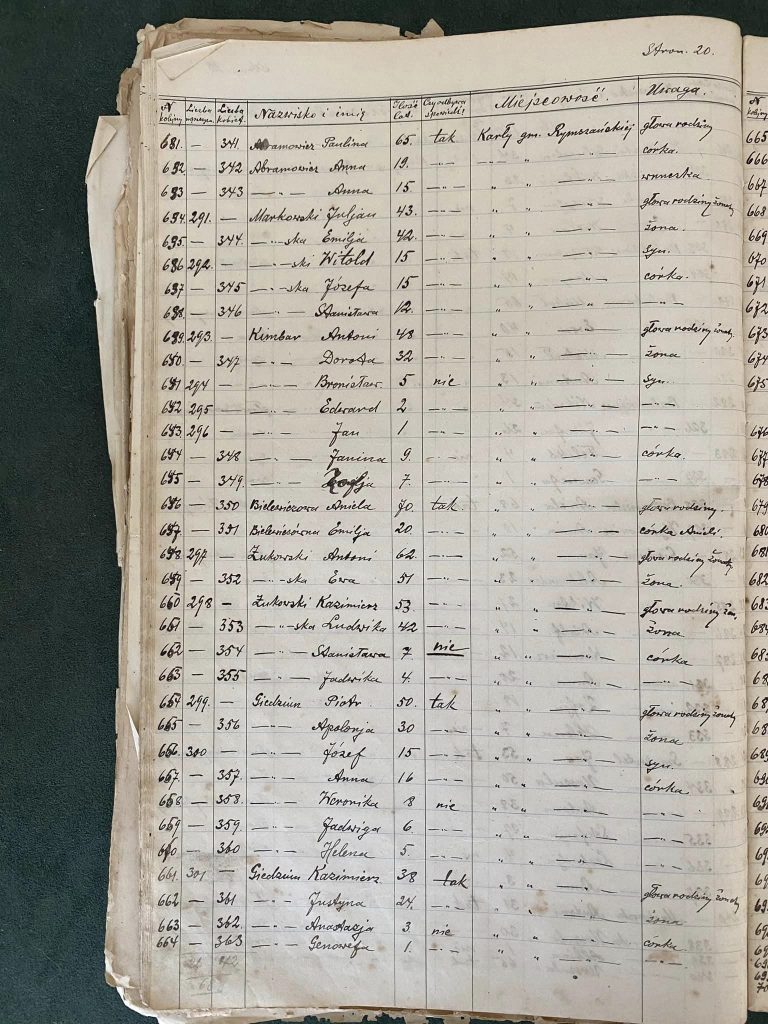 Stron. 20.
N kolejny Liczba mężczyzn. Liczba kobiet. Nazwisko i imię Ilość lat. Czy odbywa spowiedź? Miejscowość. Uwaga.
681. — 341. Abramowicz Paulina 65. tak Karły gm. Rymszańskiej głowa rodziny
682 — 342 Abramowicz Anna 19. —„— —„— „ —„— córka.
683 — 343 —„— Anna 15 —„— „ „ —„— wnuczka
684. 291. — Markowski Juljan 43. —„— „ „ —„— głowa rodziny żonaty
685. — 344. —„—ska Emilja 42. —„— „ „ —„— żona.
686 292. — —„—ski Witold 15 —„— „ „ —„— syn.
687 — 345 —„—ska Józefa 15 —„— „ „ —„— córka.
688. — 346 —„— Stanisława 12. —„— „ „ —„— —„—
689. 293. — Kimbar Antoni 48 —„— „ „ —„— głowa rodziny żonaty
650. — 347 —„— Dorota 32 —„— „ „ —„— żona
651 294 — —„— Bronisław. 5 nie „ „ —„— syn.
652 295 — —„— Edward 2 —„— „ „ —„— —„—
653. 296 — —„— Jan 1 —„— „ „ —„— —„—
654 — 348 —„— Janina 9. —„— „ „ —„— córka.
655 — 349. —„— Zofja 7. —„— „ „ —„— —„—
656 — 350 Bielewiczowa Aniela 70. tak „ „ —„— głowa rodziny.
657. — 351 Bielewiczówna Emilja 20. —„— „ „ —„— córka Anieli.
658 297 — Żukowski Antoni 62. —„— „ „ —„— głowa rodziny żonaty
659 — 352 —„—ska Ewa 51 —„— „ „ —„— żona.
660 298 — Żukowski Kazimierz 53. —„— „ „ —„— głowa rodziny żon.
661 — 353 —„—ska Ludwika 42 —„— „ „ —„— żona
662 — 354 —„— Stanisława 7 nie „ „ —„— córka
663 — 355 —„— Jadwika 4. —„— „ „ —„— —„—
664 299. — Giedziun Piotr 50. tak „ „ —„— głowa rodziny żonaty
665 — 356 —„— Apolonja 30 —„— „ „ —„— żona
666. 300 — —„— Józef 15 —„— „ „ —„— syn.
667. — 357. —„— Anna 16 —„— „ „ —„— córka
658 — 358. —„— Weronika 8 nie „ „ —„— —„—
659 — 359. —„— Jadwiga 6. —„— „ „ —„— —„—
660 — 360 —„— Helena 5. —„— „ „ —„— —„—
661. 301 — Giedziun Kazimierz 38 tak „ „ —„— głowa rodziny żonaty
662 — 361 —„— Justyna 24. —„— „ „ —„— żona
663 — 362. —„— Anastazja 3 nie „ „ —„— córka.
664 — 363 —„— Genowefa 1. —„— „ „ —„— —„—
N kolejny
665
666
667
668
669
670
671
672
673
674
675
676
677
678
679
680
681
682
683
684